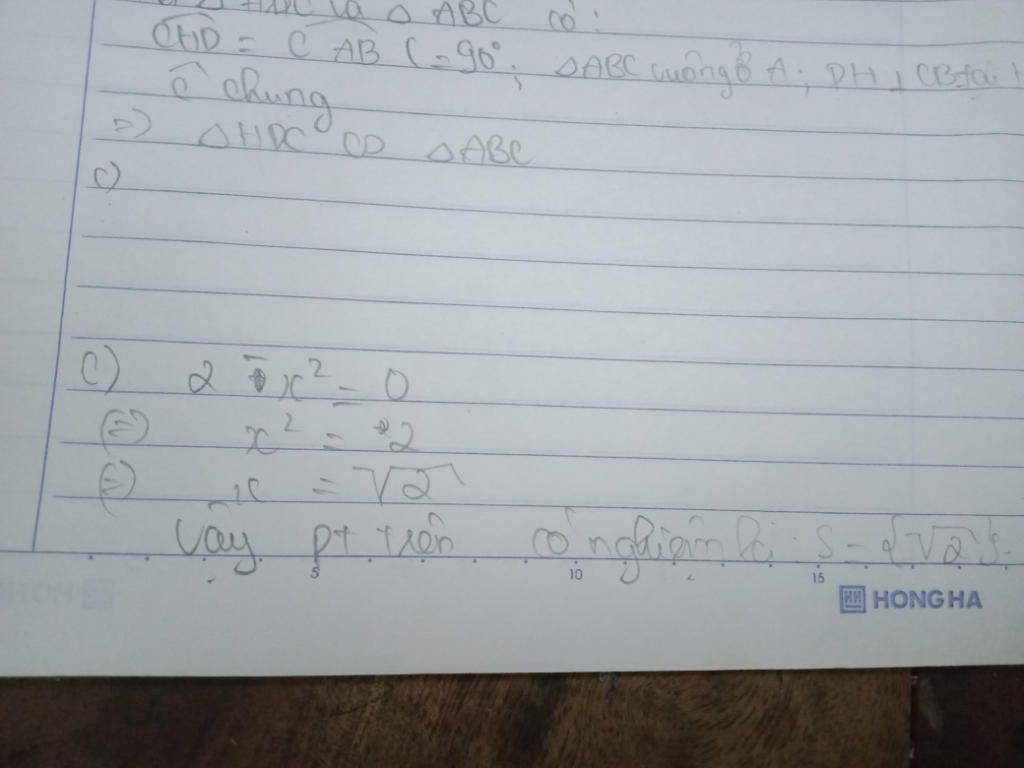 △ HDC và △ ABC có:
CHD = CAB (= 90°; △ABC vuông ở A; DH ⊥ CB tại H
Ĉ chung
=> △HDC ∽ △ABC
c)
c) 2 - x² = 0
(=) x² = 2
(=) x = √2
Vậy pt trên có nghiệm là: S = {√2}.
5 10 15
HH HONG HA